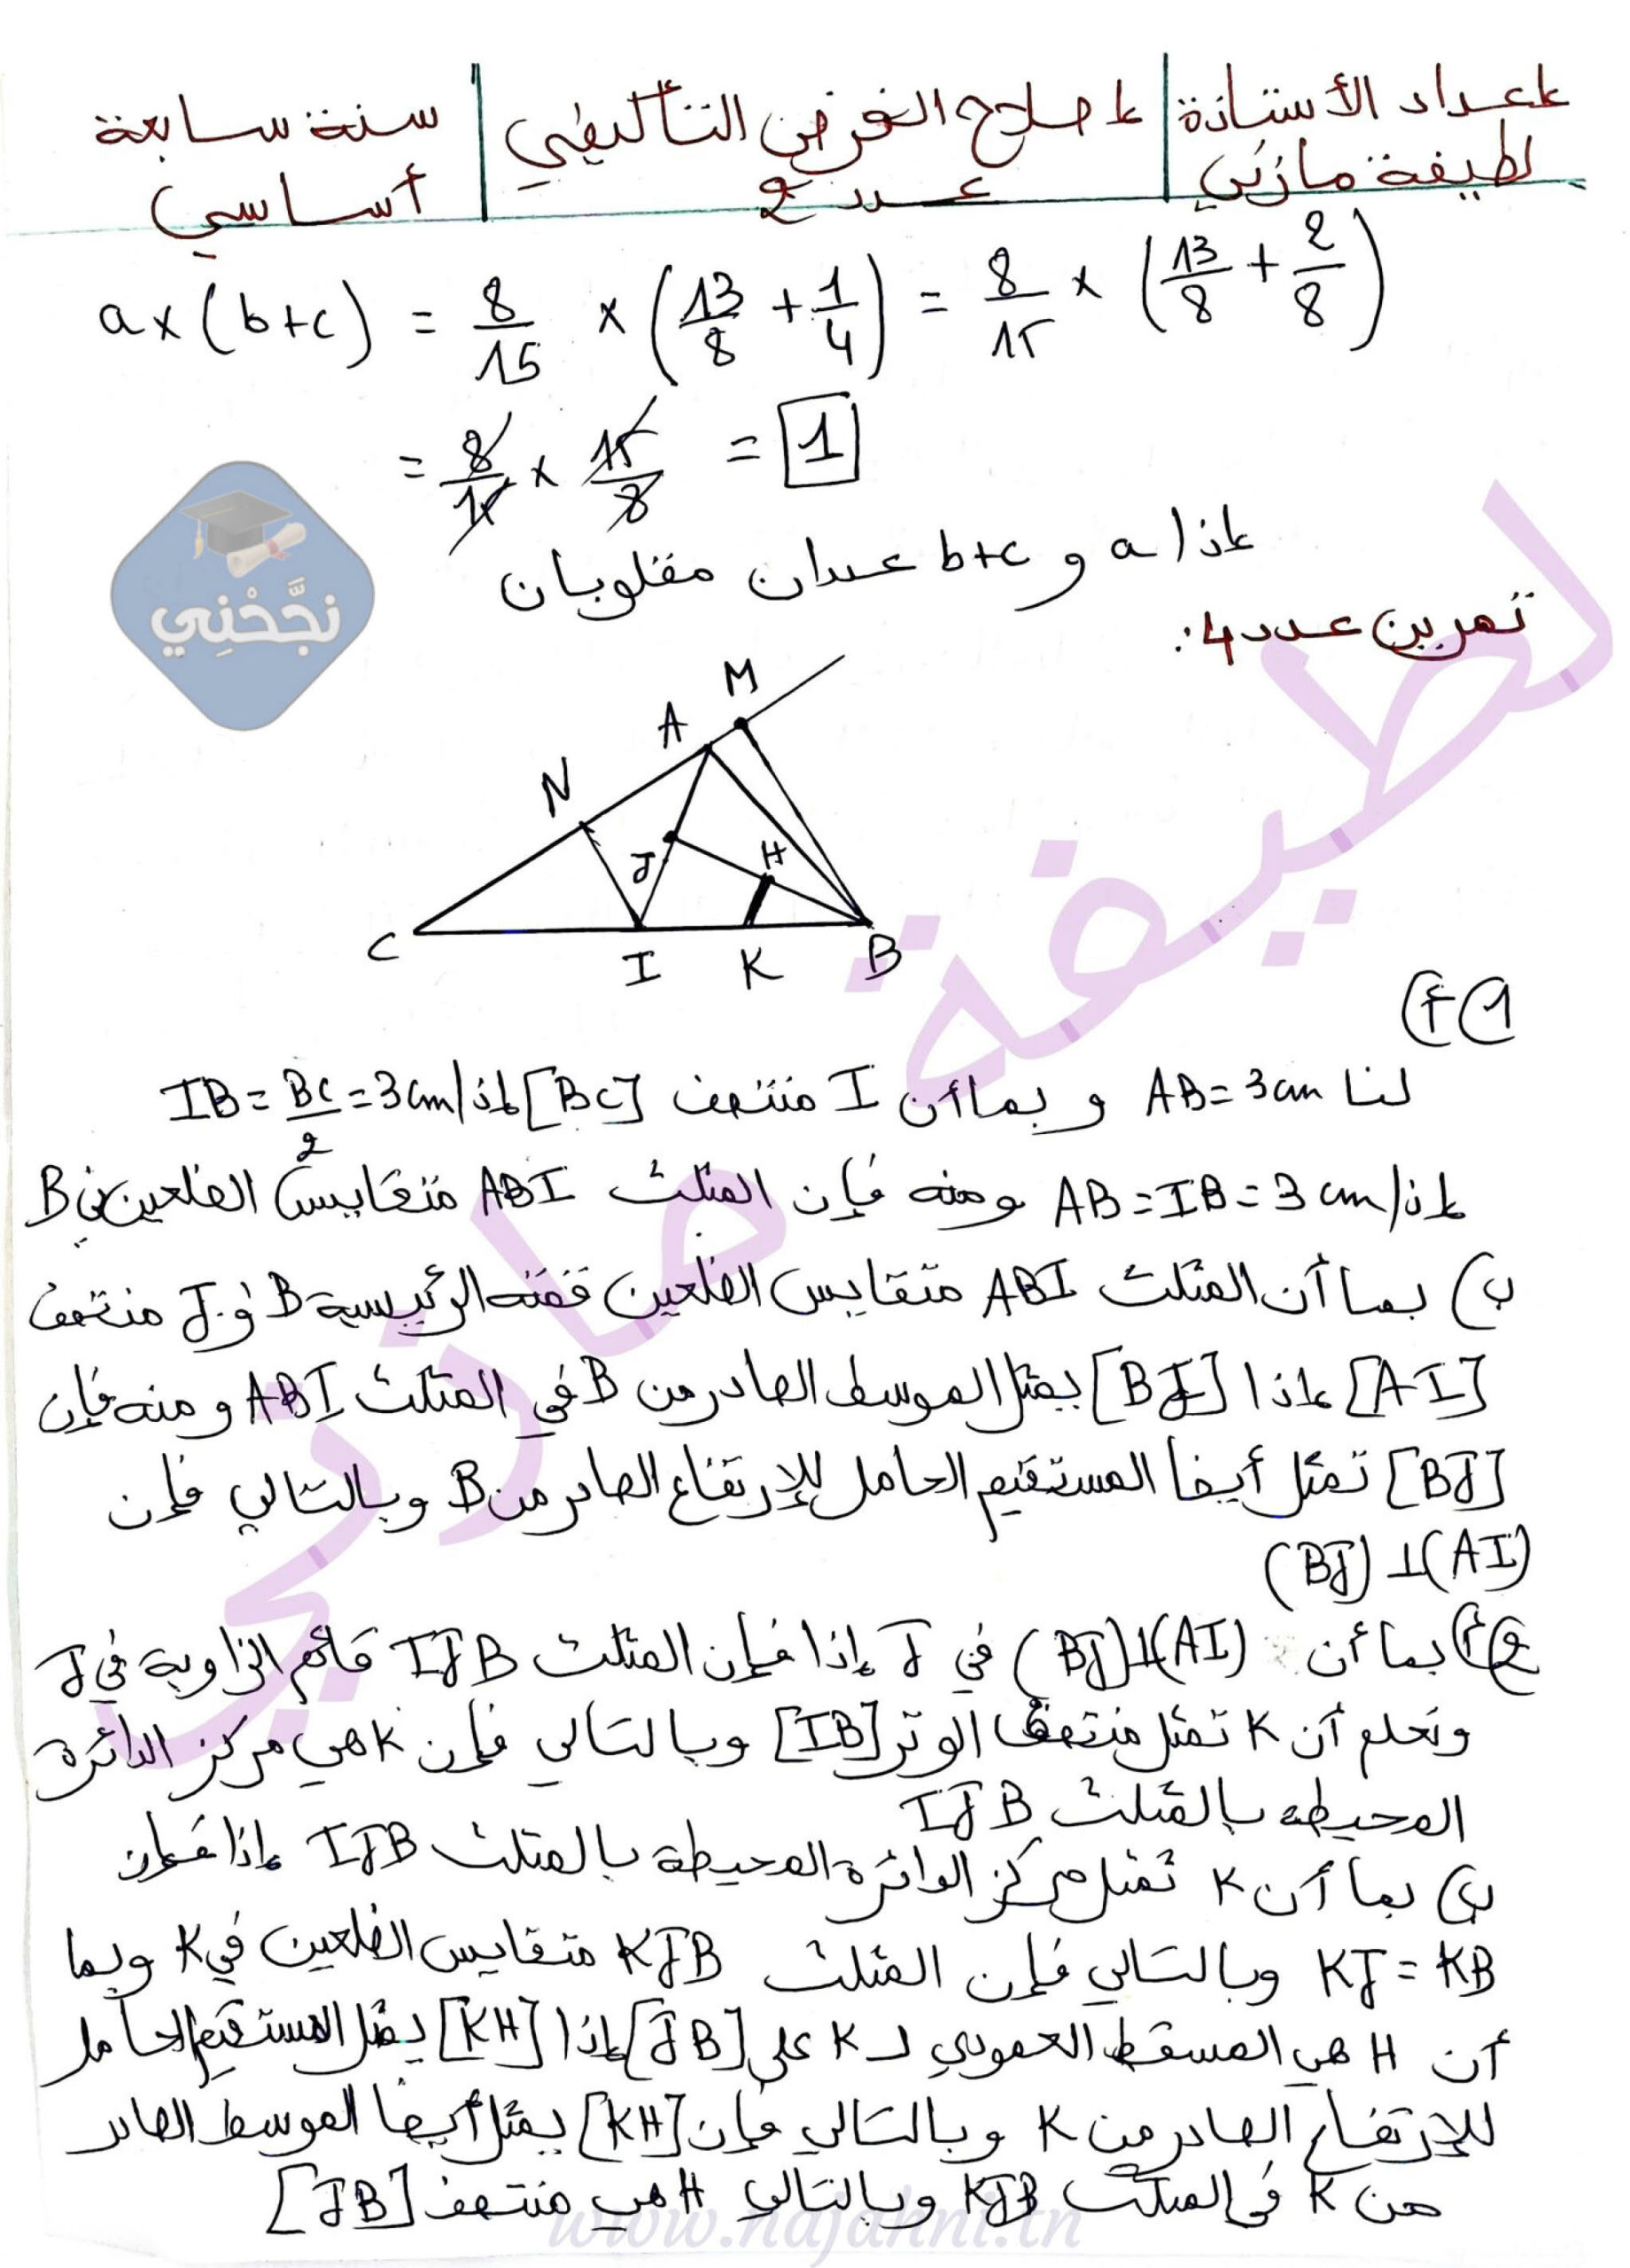 إعداد الأستاذة لطيفة مازني
إصلاح الفرض التأليفي عدد 2
سنة سابعة أساسي
a×(b+c) = 8/15 × (13/8 + 1/4) = 8/15 × (13/8 + 2/8)
= 8/15 × 15/8 = 1
إذا a و b+c عددان مقلوبان
نجّحْنِي
تمرين عدد 4:
M
A
N
J
H
C
I
K
B
1) أ)
لنا AB = 3cm و بما أن I منتصف [BC] إذا IB = BC/2 = 3cm
إذا AB = IB = 3cm ومنه فإن المثلث ABI متقايس الضلعين في B
ب) بما أن المثلث ABI متقايس الضلعين قمته الرئيسية B و J منتصف
[AI] إذا [BJ] يمثل الموسط الصادر من B في المثلث ABI و منه فإن
[BJ] تمثل أيضا المستقيم الحامل للإرتفاع الصادر من B وبالتالي فإن
(BJ) ⊥ (AI)
2) أ) بما أن (BJ) ⊥ (AI) في J إذا فإن المثلث IJB قائم الزاوية في J
ونعلم أن K تمثل منتصف الوتر [IB] وبالتالي فإن K هي مركز الدائرة
المحيطة بالمثلث IJB
ب) بما أن K تمثل مركز الدائرة المحيطة بالمثلث IJB إذا فإن
KJ = KB وبالتالي فإن المثلث KJB متقايس الضلعين في K وبما
أن H هي المسقط العمودي لـ K على [JB] إذا [KH] يمثل المستقيم الحامل
للإرتفاع الصادر من K وبالتالي فإن [KH] يمثل أيضا الموسط الصادر
من K في المثلث KJB وبالتالي H هي منتصف [JB]
لطيفة مازني
www.najahni.tn